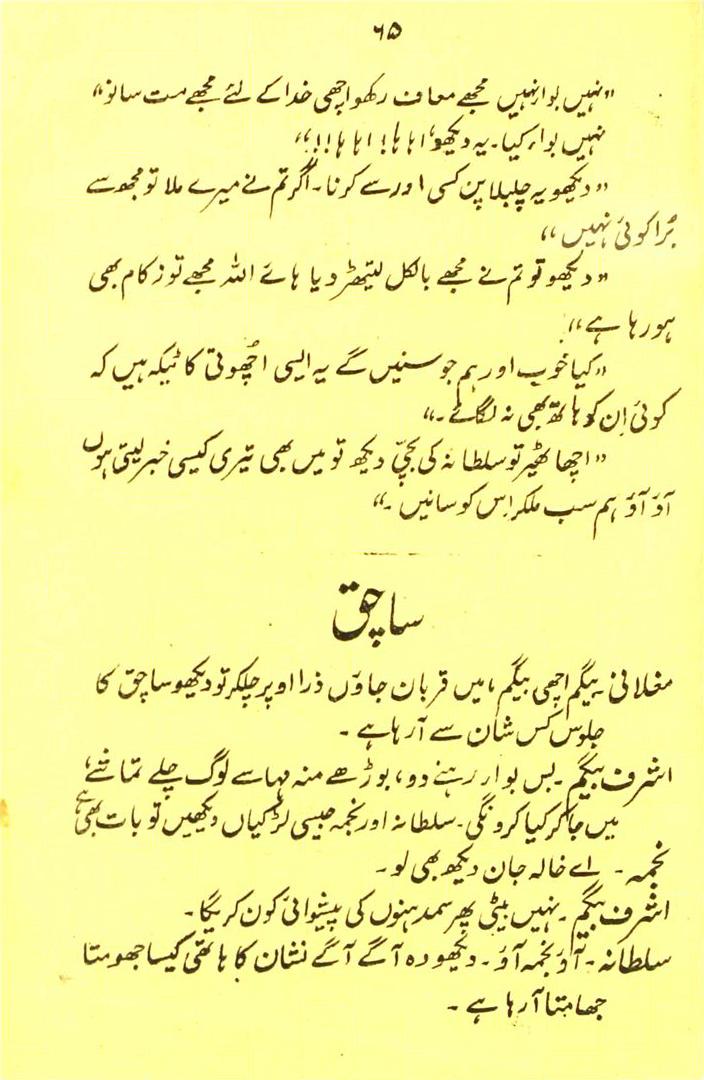 ۶۵
"نہیں بوا نہیں مجھے معاف رکھو اچھی خدا کے لئے مجھے مت سانو"
نہیں بوا، کیا۔ یہ دیکھو، اہاہا! اہاہا!!"
"دیکھو یہ چلبلا پن کسی اور سے کرنا۔ اگر تم نے میرے ملا تو مجھ سے
بُرا کوئی نہیں"
"دیکھو تو تم نے مجھے بالکل لتھیڑ دیا ہائے اللہ مجھے تو زکام بھی
ہو رہا ہے"
"کیا خوب اور ہم جو سنیں گے یہ ایسی اچُھوتی کا ٹیکہ ہیں کہ
کوئی اِن کو ہاتھ بھی نہ لگائے۔"
"اچھا ٹھیر تو سلطانہ کی بچّی دیکھ تو میں بھی تیری کیسی خبر لیتی ہوں
آؤ آؤ ہم سب ملکر اِس کو سانیں۔"
ساچق
مغلانی۔ بیگم اچھی بیگم، میں قربان جاوٗں ذرا اوپر چلکر تو دیکھو ساچق کا
جلوس کس شان سے آ رہا ہے۔
اشرف بیگم۔ بس بوا رہنے دو، بوڑھے منہ مہاسے لوگ چلے تماشے،
میں جا کر کیا کرونگی۔ سلطانہ اور نجمہ جیسی لڑکیاں دیکھیں تو بات بھی ہے
نجمہ۔ اے خالہ جان دیکھ بھی لو۔
اشرف بیگم۔ نہیں بیٹی پھر سمدہنوں کی پیشوائی کون کریگا۔
سلطانہ۔ آؤ نجمہ آؤ۔ دیکھو وہ آگے آگے نشان کا ہاتھی کیسا جھومتا
جھامتا آ رہا ہے۔